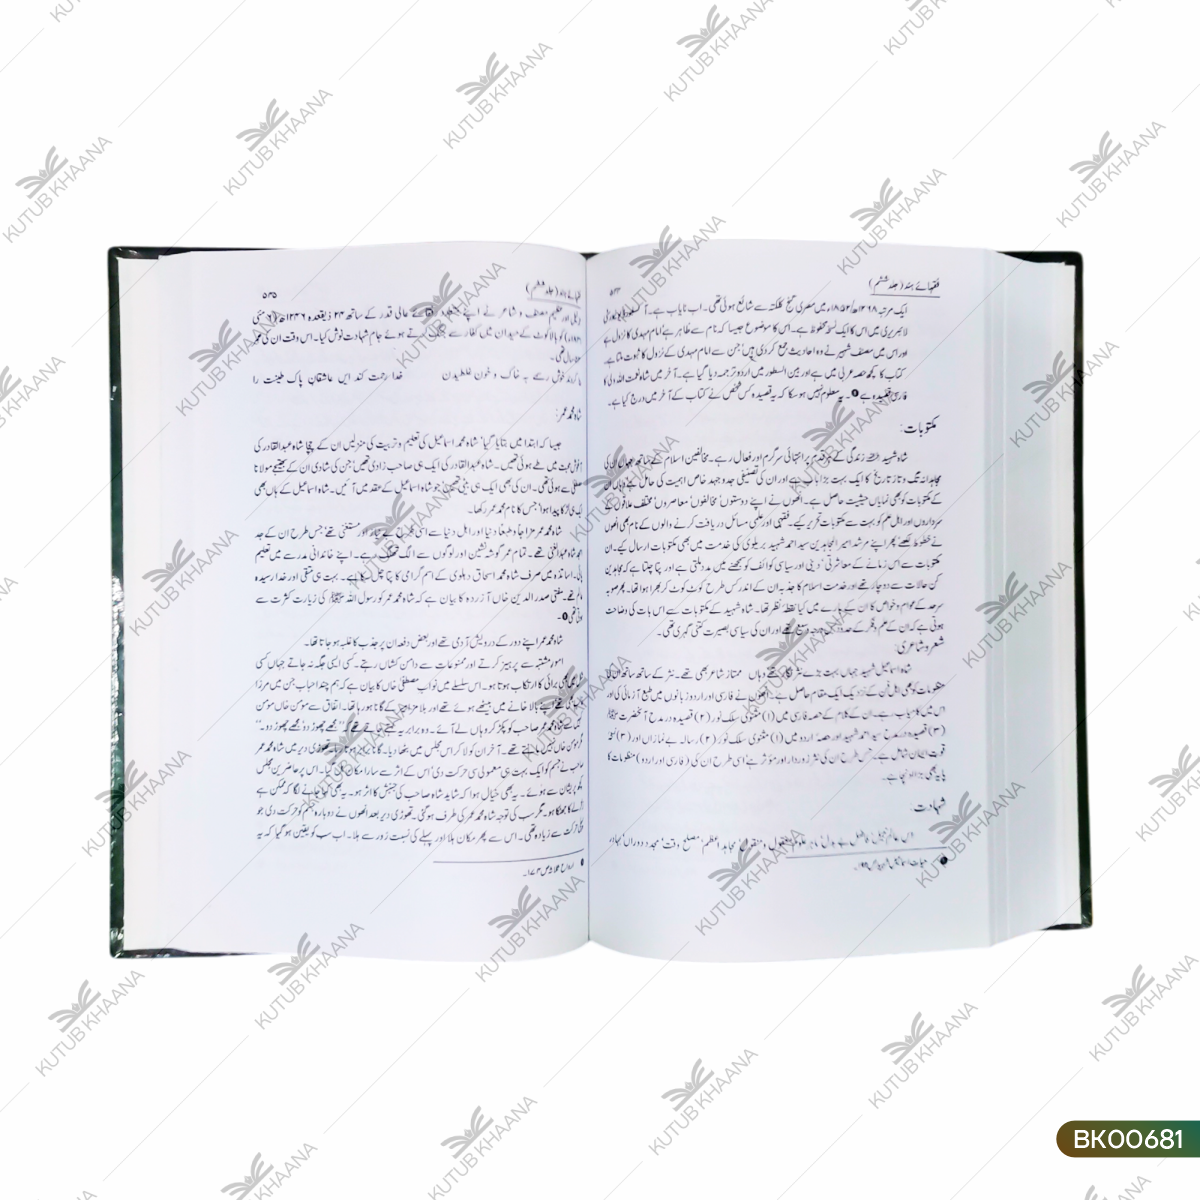 فقہائے ہند (جلد ششم)
۵۳۴
ایک مرتبہ ۱۲۶۸ھ/۱۸۵۲ء میں مصری گنج کلکتہ سے شائع ہوئی تھی۔ اب نایاب ہے۔
لائبریری میں اس کا ایک نسخہ محفوظ ہے۔ اس کا موضوع جیسا کہ نام سے ظاہر ہے امام مہدی کا نزول ہے
اور اس میں مصنف شہیر نے وہ احادیث جمع کر دی ہیں جن سے امام مہدی کے نزول کا ثبوت ملتا ہے۔
کتاب کا کچھ حصہ عربی میں ہے اور بین السطور میں اردو ترجمہ دیا گیا ہے۔ آخر میں شاہ نعمت اللہ ولی کا
فارسی قصیدہ ہے۔ یہ معلوم نہیں ہو سکا کہ یہ قصیدہ کس شخص نے کتاب کے آخر میں درج کیا ہے۔
مکتوبات:
شاہ شہید زندگی کے ہر قدم پر انتہائی سرگرم اور فعال رہے۔ مخالفین اسلام کے ساتھ جہاں ان کی
مجاہدانہ تگ و تاز تاریخ کا ایک بہت بڑا باب ہے اور ان کی تصنیفی جدوجہد خاص اہمیت کی حامل ہے وہاں ان
کے مکتوبات کو بھی نمایاں حیثیت حاصل ہے۔ انھوں نے اپنے دوستوں، مخالفوں، معاصروں، مختلف علاقوں کے
سرداروں اور اہل علم کو بہت سے مکتوبات تحریر کیے۔ فقہی اور علمی مسائل دریافت کرنے والوں کے نام بھی انھوں
نے خطوط لکھے پھر اپنے مرشد امیر المجاہدین سید احمد شہید بریلوی کی خدمت میں بھی مکتوبات ارسال کیے۔ ان
مکتوبات سے اس زمانے کے معاشرتی، دینی اور سیاسی کوائف کو سمجھنے میں مدد ملتی ہے اور پتا چلتا ہے کہ مجاہدین
کن حالات سے دوچار تھے اور خدمت اسلام کا جذبہ ان کے اندر کس طرح کوٹ کوٹ کر بھرا ہوا تھا۔ پھر صوبہ
سرحد کے عوام و خواص کا ان کے بارے میں کیا نقطۂ نظر تھا۔ شاہ شہید کے مکتوبات سے اس بات کی وضاحت
ہوتی ہے کہ ان کے علم و فکر کے حدود وسیع تھے اور ان کی سیاسی بصیرت کتنی گہری تھی۔
شعر و شاعری:
شاہ اسماعیل شہید جہاں بہت بڑے نثر نگار تھے وہاں ممتاز شاعر بھی تھے۔ نثر کے ساتھ ساتھ ان کی
منظومات کو بھی اہل فن کے نزدیک ایک مقام حاصل ہے۔ انھوں نے فارسی اور اردو زبانوں میں طبع آزمائی کی اور
اس میں کامیاب رہے۔ ان کے کلام کے حصہ فارسی میں (۱) مثنوی سلک نور (۲) قصیدہ در مدح آنحضرت ﷺ
(۳) قصیدہ در مدح سید احمد شہید اور حصہ اردو میں (۱) مثنوی سلک نور (۲) رسالہ بے نمازاں اور (۳)
شامل ہے۔ جس طرح ان کی نثر زوردار اور مؤثر ہے اسی طرح ان کی (فارسی اور اردو) منظومات کا
پایہ بھی بڑا اونچا ہے۔
شہادت:
اس عالم جلیل، فاضل بے بدل، ماہر علوم معقول و منقول، مجاہد اعظم، مصلح وقت، مجدد دوراں، بہادر
فقہائے ہند (جلد ششم)
۵۳۵
اور عظیم مصنف و شاعر نے اپنے عالی قدر کے ساتھ ۲۴ ذیقعدہ ۱۲۴۶ھ (۶ مئی
کو بالاکوٹ کے میدان میں کفار سے جنگ کرتے ہوئے جام شہادت نوش کیا۔ اس وقت ان کی عمر
سال تھی۔
بنا کردند خوش رسمے بہ خاک و خون غلطیدن    خدا رحمت کند ایں عاشقان پاک طینت را
شاہ محمد عمر:
جیسا کہ ابتدا میں بتایا گیا شاہ محمد اسماعیل کی تعلیم و تربیت کی منزلیں ان کے چچا شاہ عبدالقادر کی
آغوش محبت میں طے ہوئی تھیں۔ شاہ عبدالقادر کی ایک ہی صاحب زادی تھیں جن کی شادی ان کے بھتیجے مولانا
سے ہوئی تھی۔ ان کی بھی ایک ہی بیٹی تھیں جو شاہ اسماعیل کے عقد میں آئیں۔ شاہ اسماعیل کے ہاں بھی
ایک ہی لڑکا پیدا ہوا جس کا نام محمد عمر رکھا۔
شاہ محمد عمر مزاجاً و طبعاً دنیا اور اہل دنیا سے اسی طرح بے نیاز اور مستغنی تھے جس طرح ان کے جد
امجد شاہ عبدالغنی تھے۔ تمام عمر گوشہ نشین اور لوگوں سے الگ تھلگ رہے۔ اپنے خاندانی مدرسے میں تعلیم
پائی۔ اساتذہ میں صرف شاہ محمد اسحاق دہلوی کے اسم گرامی کا پتا چل سکا ہے۔ بہت ہی متقی اور خدا رسیدہ
عالم تھے۔ مفتی صدر الدین خاں آزردہ کا بیان ہے کہ شاہ محمد عمر کو رسول اللہ ﷺ کی زیارت کثرت سے
ہوتی تھی۔
شاہ محمد عمر اپنے دور کے درویش آدمی تھے اور بعض دفعہ ان پر جذب کا غلبہ ہو جاتا تھا۔
امور مشتبہ سے پرہیز کرتے اور ممنوعات سے دامن کشاں رہتے۔ کسی ایسی جگہ نہ جاتے جہاں کسی
برائی کا ارتکاب ہوتا ہو۔ اس سلسلے میں نواب مصطفیٰ خاں کا بیان ہے کہ ہم چند احباب جن میں مرزا
بھی تھے اپنے بالا خانے میں بیٹھے ہوئے تھے اور بلا مزامیر کے گانا ہو رہا تھا۔ اتفاق سے مومن خاں مومن
شاہ محمد عمر کو پکڑ کر وہاں لے آئے۔ وہ برابر یہ کہتے جاتے تھے ”مجھے چھوڑ دو مجھے چھوڑ دو۔“
مگر مومن خاں نہیں مانتے تھے۔ آخر ان کو لا کر اس مجلس میں بٹھا دیا۔ گانا برابر ہوتا رہا۔ تھوڑی دیر میں شاہ محمد عمر
صاحب نے جسم کو ایک بہت ہی معمولی سی حرکت دی اس کے اثر سے سارا مکان ہل گیا۔ اس پر حاضرین مجلس
کچھ پریشان سے ہوئے۔ یہ بھی خیال ہوا کہ شاید شاہ صاحب کی جنبش کا اثر ہو۔ یہ بھی کہا جانے لگا کہ ممکن ہے
زلزلے کا جھٹکا ہو۔ مگر سب کی توجہ شاہ محمد عمر کی طرف ہو گئی۔ تھوڑی دیر بعد انھوں نے دوبارہ جسم کو حرکت دی جو
پہلی حرکت سے زیادہ تھی۔ اس سے پھر مکان ہلا اور پہلے کی نسبت زور سے ہلا۔ اب سب کو یقین ہو گیا کہ یہ
ارواح ثلاثہ ص ۱۷۳۔
KUTUB KHAANA
BK00681